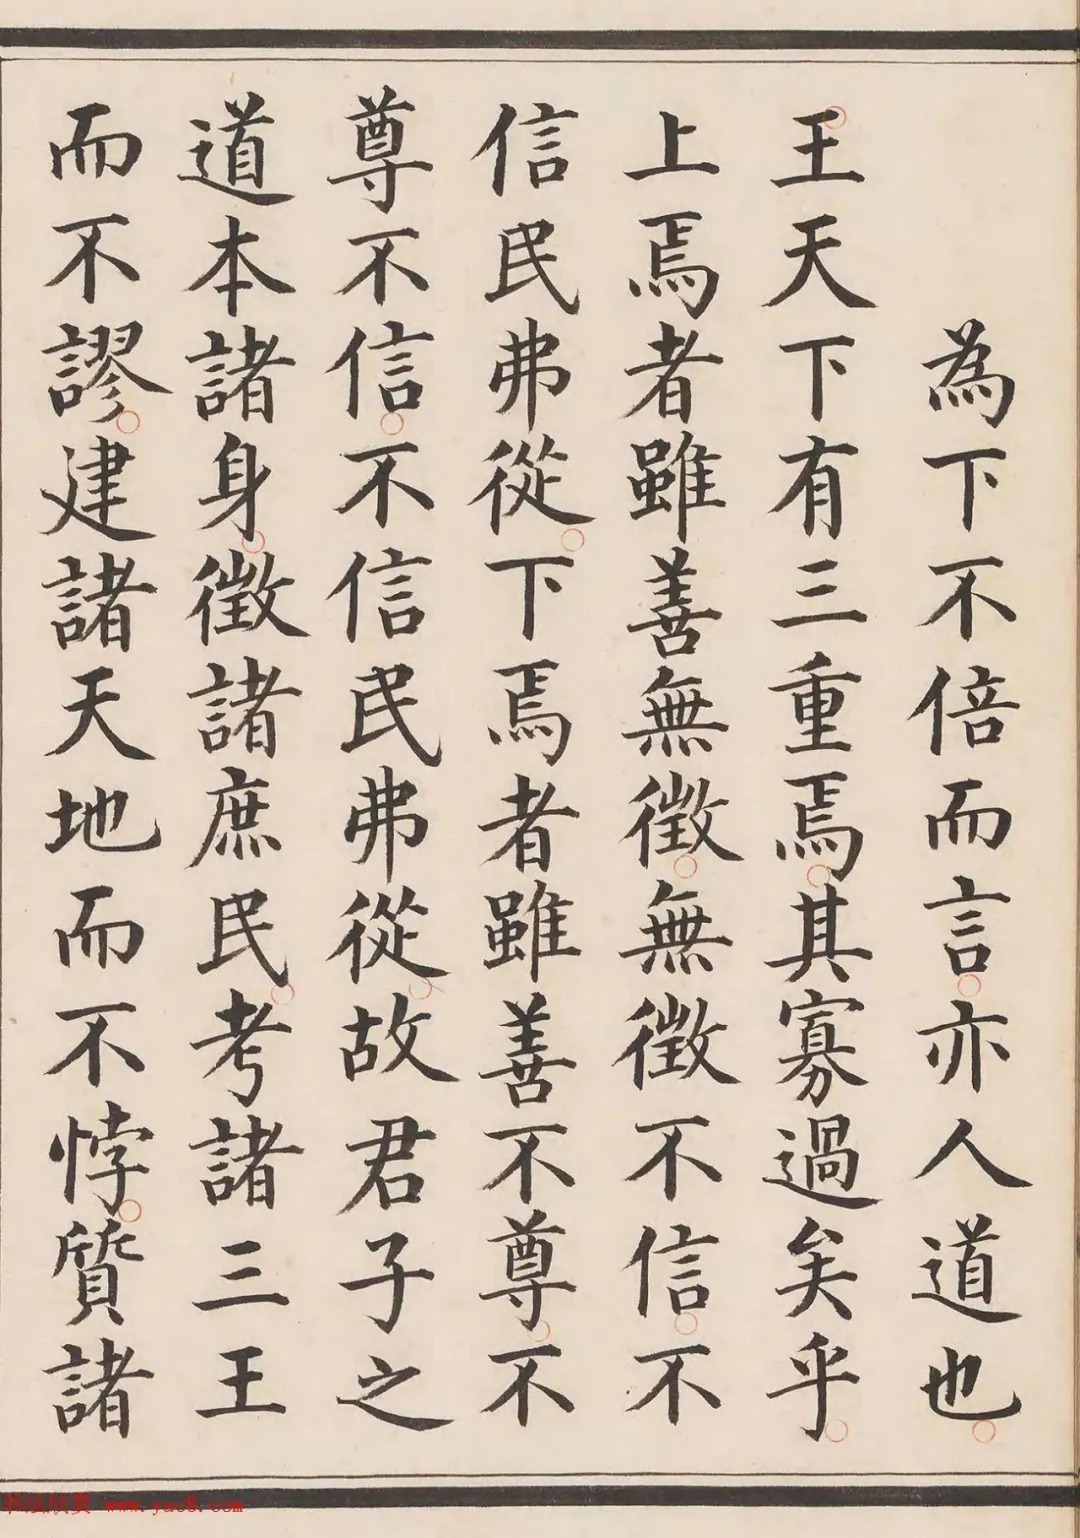 為下不倍而言亦人道也
王天下有三重焉其寡過矣乎
上焉者雖善無徵無徵不信不
信民弗從下焉者雖善不尊不
尊不信不信民弗從故君子之
道本諸身徵諸庶民考諸三王
而不謬建諸天地而不悖質諸
书法欣赏 www.yac8.com